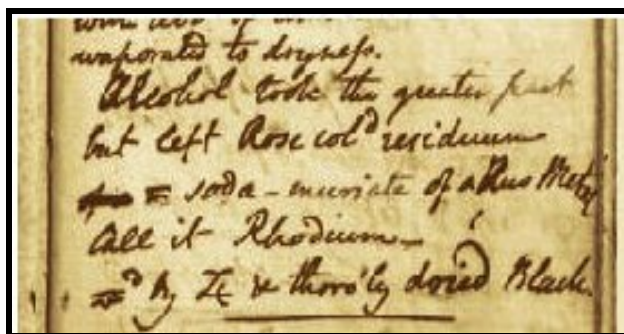 evaporated to dryness.
Alcohol took the greater part
but left Rose col^d residuum
= soda-muriate of a
Call it Rhodium
by & thoro'ly dried Black.